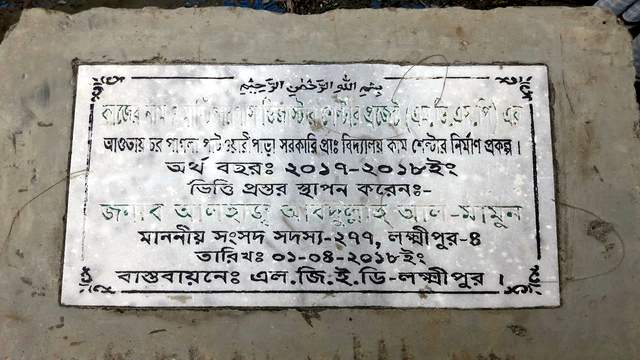 بسم الله الرحمن الرحيم
কাজের নাম ঃ মাল্টিপারপাস ডিজাস্টার শেল্টার প্রজেক্ট (এম.ডি.এস.পি) এর
আওতায় চর পাগলা পাটওয়ারী পাড়া সরকারি প্রাঃ বিদ্যালয় কাম শেল্টার নির্মাণ প্রকল্প ।
অর্থ বছরঃ ২০১৭-২০১৮ইং
ভিত্তি প্রস্তর স্থাপন করেনঃ-
জনাব আলহাজ্ব আবদুল্লাহ আল-মামুন
মাননীয় সংসদ সদস্য-২৭৭, লক্ষ্মীপুর-৪
তারিখঃ ০১-০৪-২০১৮ইং
বাস্তবায়নেঃ এল.জি.ই.ডি-লক্ষ্মীপুর ।